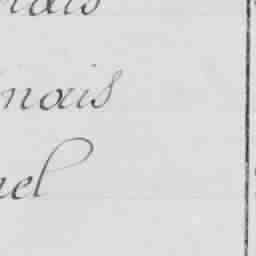 nais
nais
nel